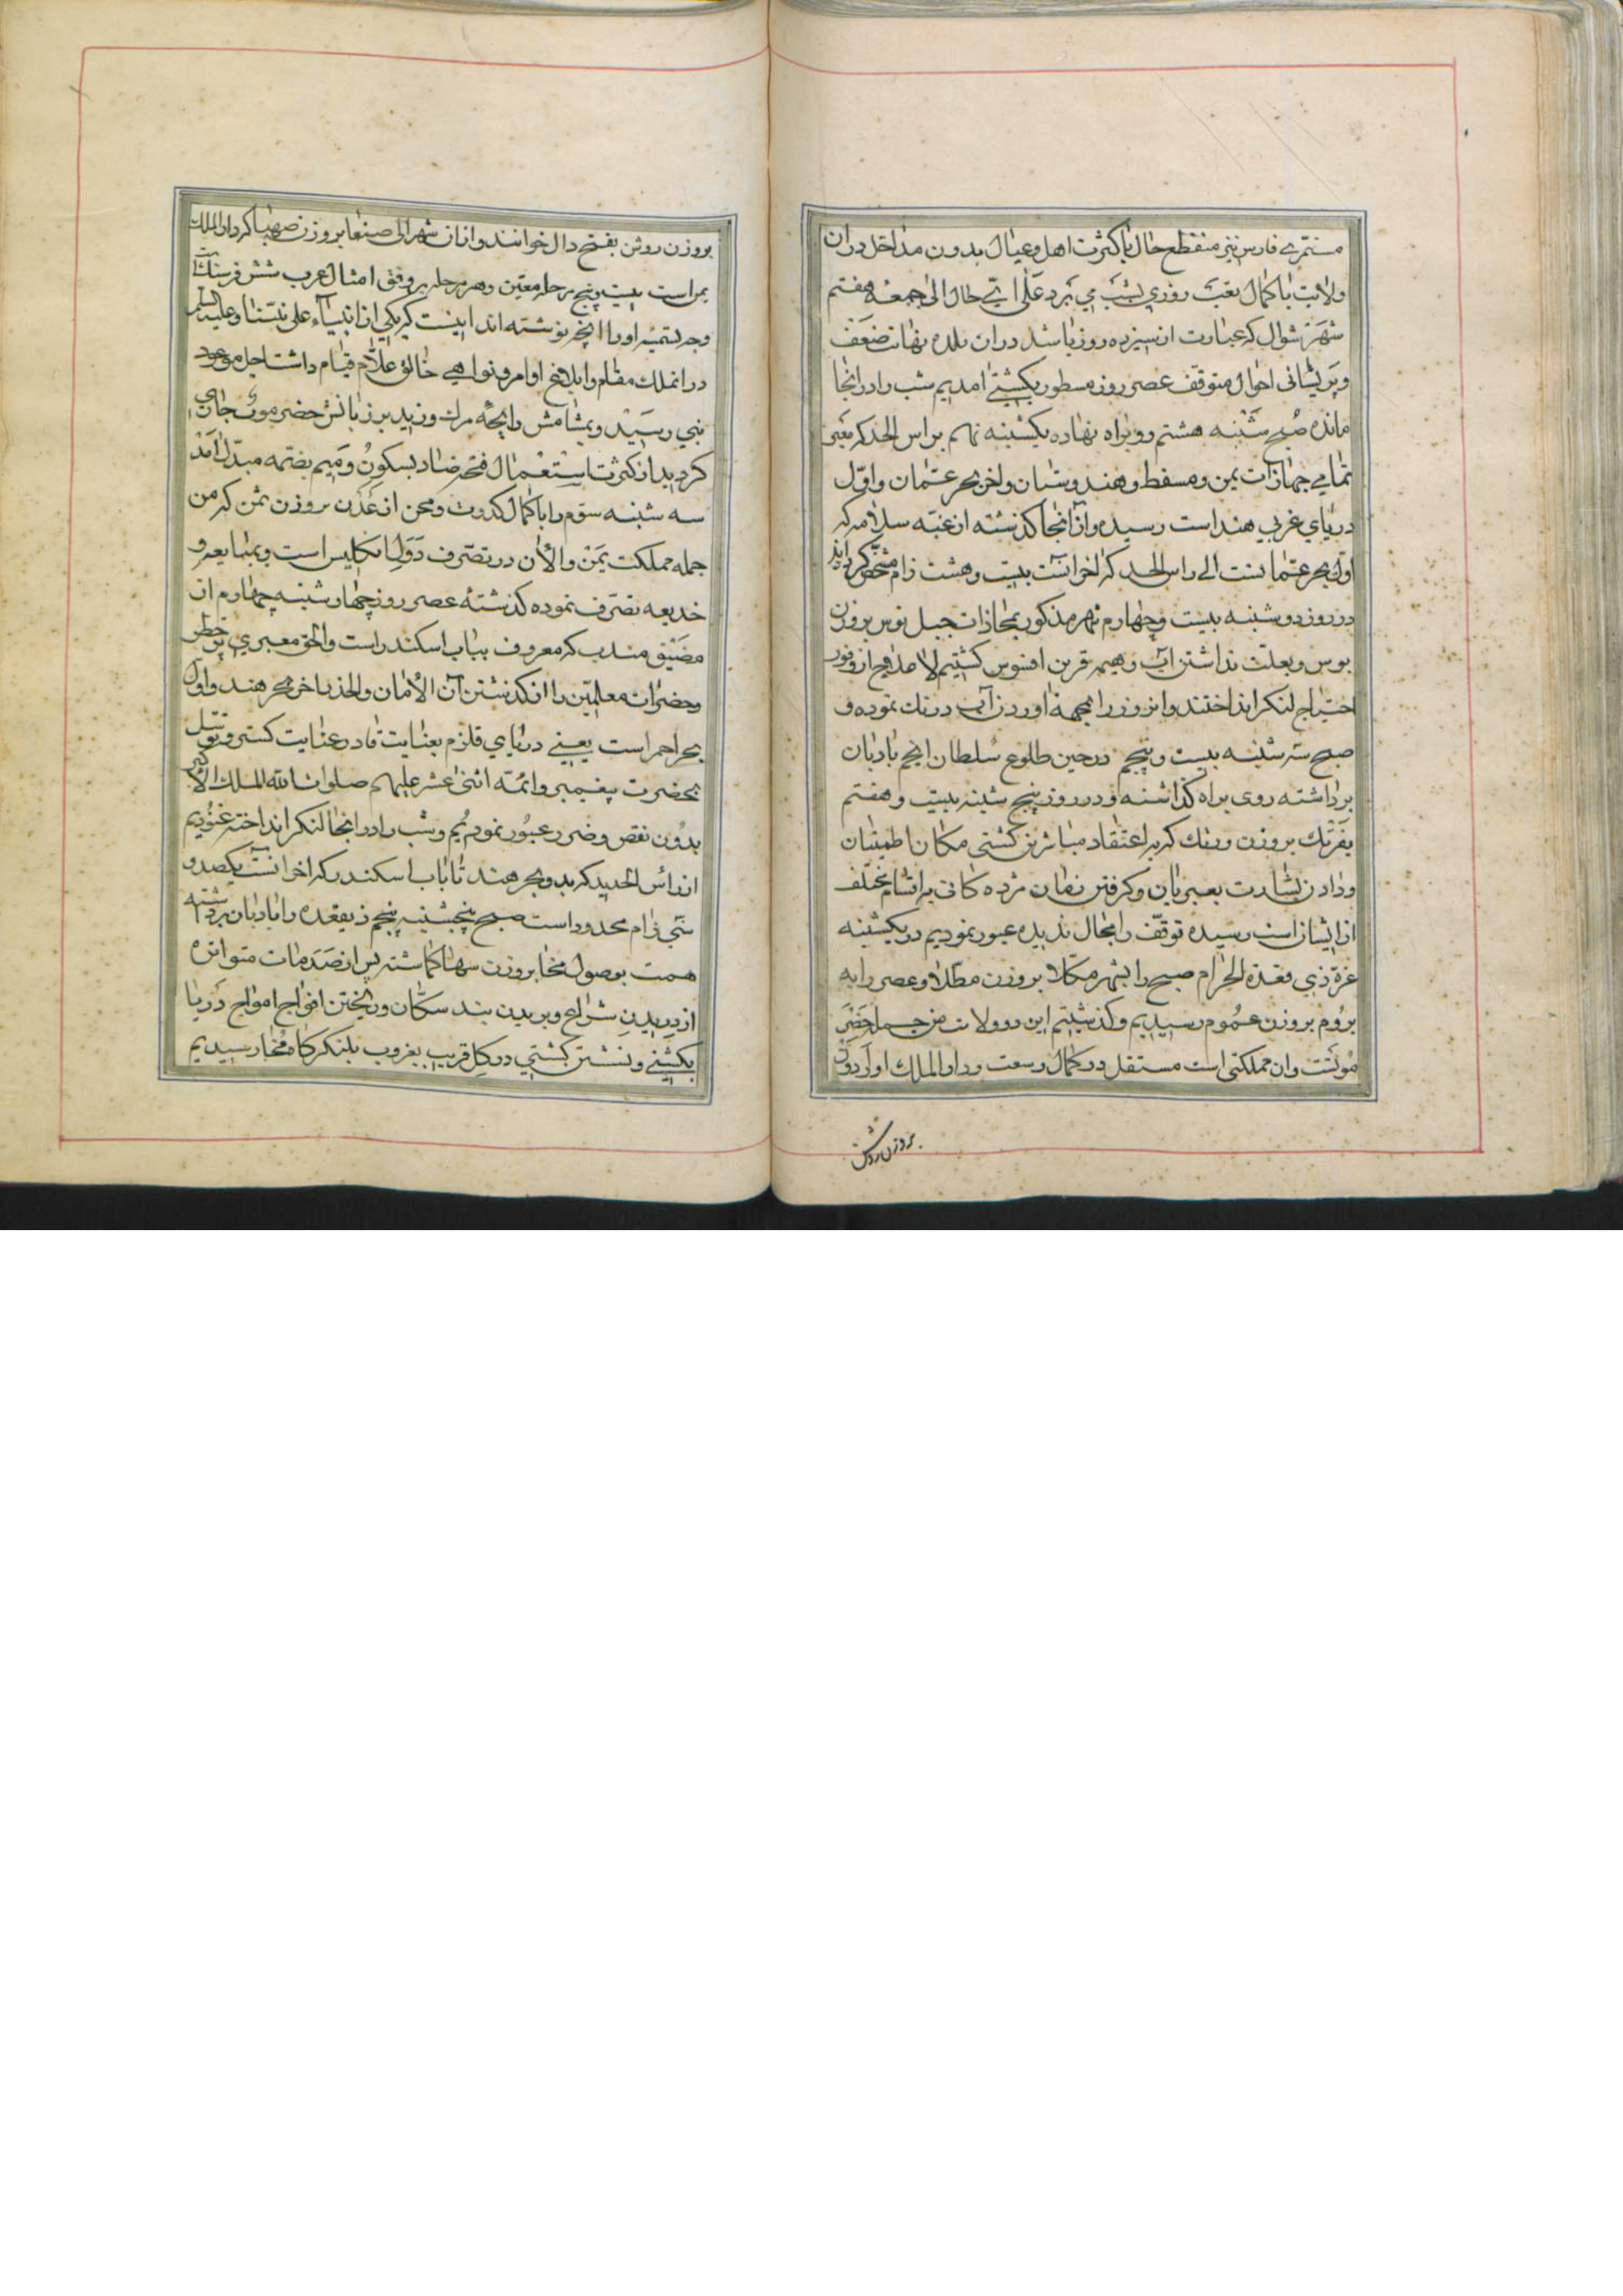 مستمری فارس نیز منقطع حال با کثرت اهل و عیال بدون مداخل در ان
ولایت با کمال تعب روزی بشب می برد علی ای حال الی جمعه هفتم
شهر شوال که عبارت از سیزده روز باشد در ان بلده بنهایت ضعف
و پریشانی احوال متوقف عصر روز مسطور بکشتی امدیم شب را در انجا
مانده صبح شنبه هشتم رو براه نهاده یکشنبه نهم براس الحد که معبر
تمامی جهازات یمن و مسقط و هندوستان و اخر بحر عمان و اول
دریای غربی هند است رسیده و از انجا گذشته از عتبه سلامه که
اول بحر عمانست الی راس الحد که اخر انست بیست و هشت زام مشخص کرده اند
در روز دوشنبه بیست و چهارم شهر مذکور بمحاذات جبل نوس بروزن
بوس و بعلت نداشتن اب و هیمه قرین افسوس کشتیم لا علاج از وفور
احتیاج لنکر انداختند و انروز را بجهة اوردن آب درنک نموده و
صبح سه شنبه بیست و پنجم در حین طلوع سلطان انجم بادبان
برداشته روی براه کذاشته و در روز پنج شنبه بیست و هفتم
بفرتک بروزن ورتک که باعتقاد مباشرین کشتی مکان اطمینان
و دادن بشارت بعبریان و کرفتن نقان مژده کانی بر اقسام مختلف
از ایشان است رسیده توقف را مجال ندیده عبور نمودیم در یکشنبه
غرة ذی قعدة الحرام صبح را بشهر مکلا بروزن مطلا و عصر را به
بروم بروزن عموم رسیدیم و کذشتیم این دو ولایت من جمله حضر
موتست و ان مملکتی است مستقل در کمال وسعت و دار الملک او را دون
بروزن روشن
بروزن روشن بفتح دال خوانند و از ان شهر الی صنعا بروزن صهبا که دار الملک
یمن است بیست و پنج مرحله معین و هر مرحله بر وفق امثال عرب شش فرسنک است
وجه تسمیه او را انچه نوشته اند اینست که یکی از انبیاء علی نبینا و علیه السلم
در انملک مقام و ابلاغ اوامر و نواهی خالق علام قیام داشت اجل موعود
نبی رسید و بمشامش رایحه مرک وزید بر زبانش حضر موت جاری
کردید از کثرت استعمال فتحه ضاد بسکون و میم بضمه مبدل امد
سه شنبه سوم را با کمال کدورت و محن از عدن بروزن ثمن که من
جمله مملکت یمن و الان در تصرف دول انکلیس است و بمبایعه و
خدیعه تصرف نموده کذشته عصر روز چهارشنبه چهارم از
مضیق مندب که معروف بباب اسکندر است و الحق معبری پر خطر
و حضرات معلمین را از کذشتن آن الامان و الحذر اخر بحر هند و اول
بحر احمر است یعنی دریای قلزم بعنایت قادر عنایت کستر و توسل
بحضرت پیغمبر و ائمه اثنی عشر علیهم صلوات الله الملک الاکبر
بدون نقص و ضرر عبور نمودیم و شب را در انجا لنکر انداخته غنودیم
از راس الحدید که بدو بحر هند تا باب اسکندر که اخر انست یکصد و
سی زام محدود است صبح پنجشنبه پنجم ذیقعده را بادبان برداشته
همت بوصول مخا بروزن سها کماشته پس از صدمات متواتره
از دریدن شراع و بریدن بند سکان و ریختن افواج امواج دریا
بکشتی و نشستن کشتی در کل قریب بغروب بلنکرکاه مخا رسیدیم